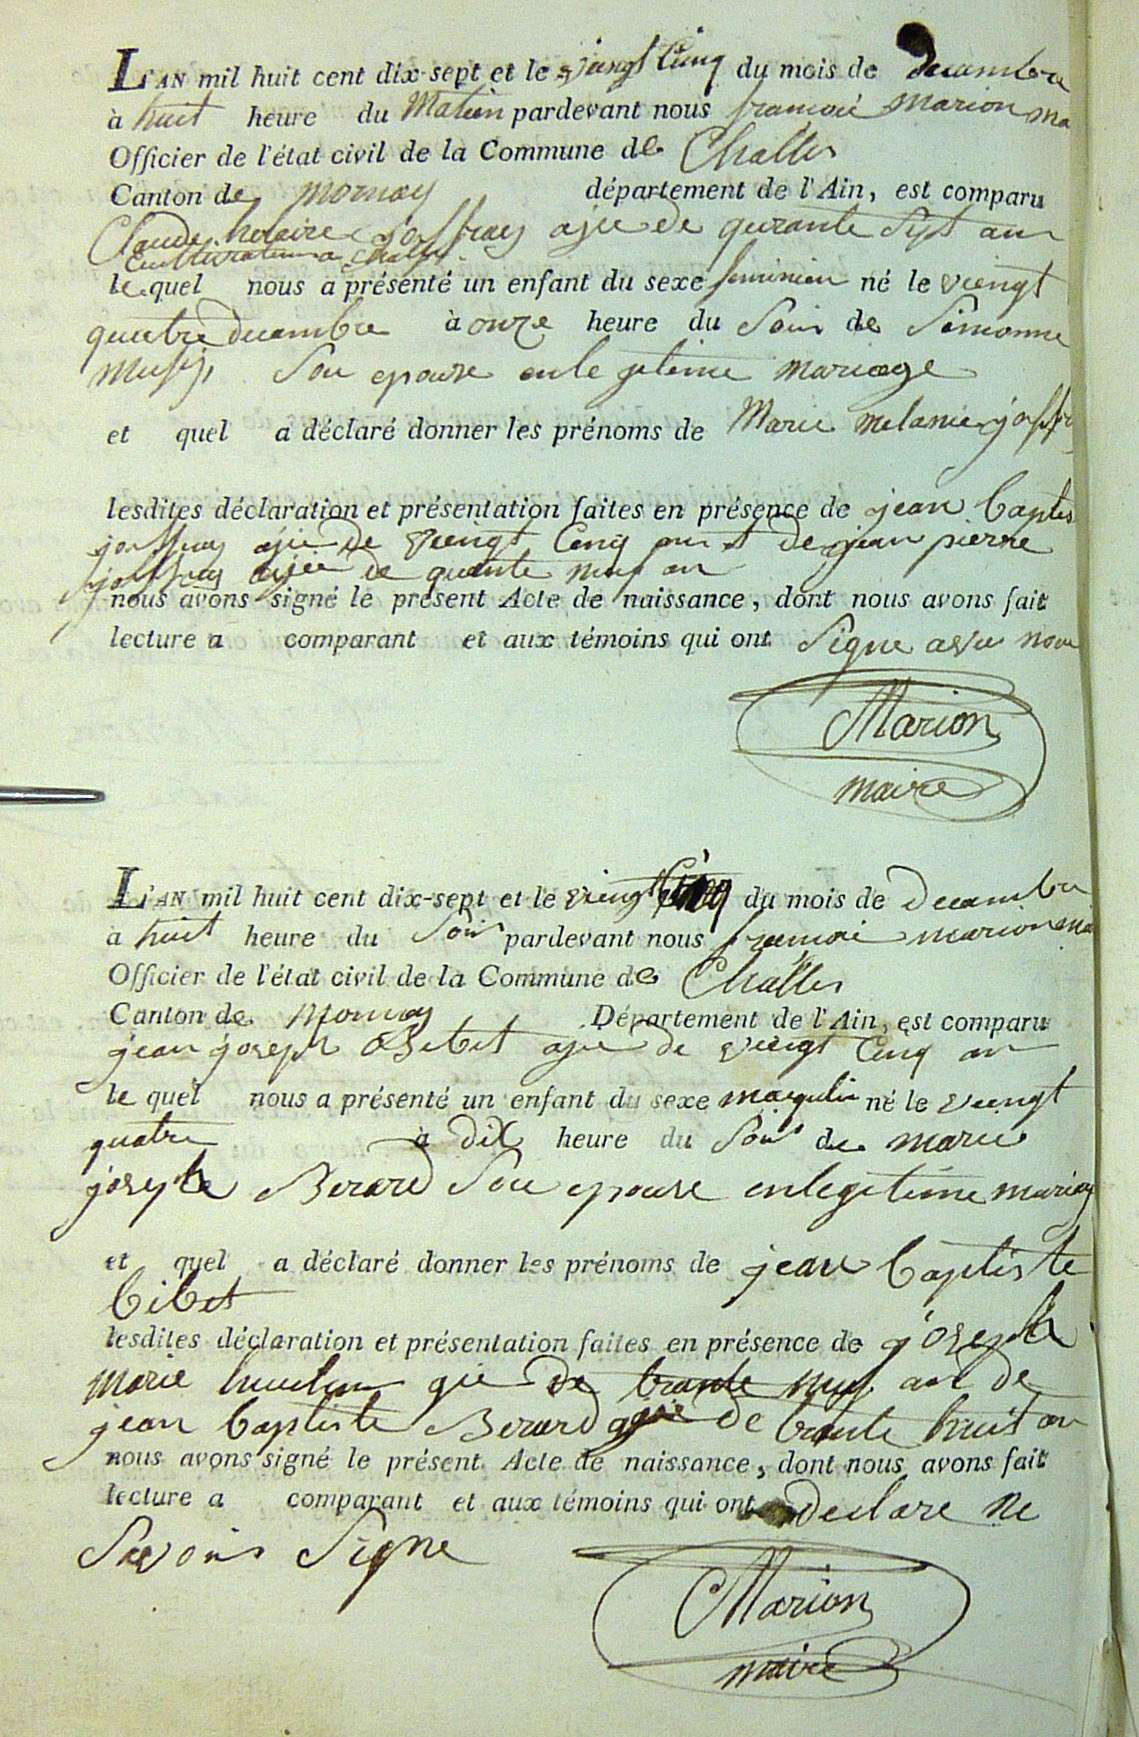 L'AN mil huit cent dix-sept et le vingt Cinq du mois de decambre
à huit heure du Matin pardevant nous francoi Marion ma
Officier de l'état civil de la Commune de Challes
Canton de Mornay département de l'Ain, est comparu
Claude joffray agie de quarante Sept an
Cultivateur a Challes
le quel nous a présenté un enfant du sexe feminien né le viengt
quatre decambre à onze heure du Soir de Simonne
Son epouse en le getime mariage
et quel a déclaré donner les prénoms de Marie melanie joffr
lesdites déclaration et présentation faites en présence de jean baptis
joffray agie de viengt Cinq an et de jean pierre
joffray agie de neuf an
nous avons signé le présent Acte de naissance, dont nous avons fait
lecture a comparant et aux témoins qui ont Signe avec nous
Marion
maire
L'AN mil huit cent dix-sept et le viengt Cinq du mois de decambre
à huit heure du Soir pardevant nous francoi marion mai
Officier de l'état civil de la Commune de Challes
Canton de Mornay Département de l'Ain, est comparu
jean joseph Bibet agie de viengt Cinq an
le quel nous a présenté un enfant du sexe masqulin né le viengt
quatre à dix heure du Soir de marie
josephe Berard Son epouse en legetime mariag
et quel a déclaré donner les prénoms de jean baptiste
bibet
lesdites déclaration et présentation faites en présence de joseph
marie gie de trante neuf an et de
jean baptiste Berard agie de trante huit an
nous avons signé le présent Acte de naissance, dont nous avons fait
lecture a comparant et aux témoins qui ont declare ne
Savoir Signe
Marion
maire